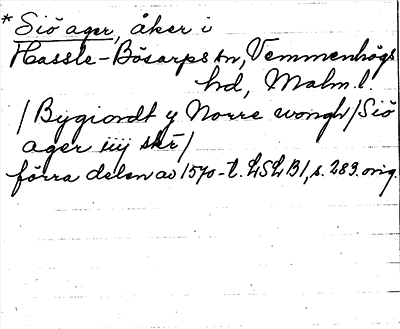 * Siö ager, åker i
Hassle-Bösarps sn, Vemmenhögs
hd, Malm. l.
/ Bygiondt y Norre wongh / Siö
ager iiij skr /
förra delen av 1570-t. LSLB1, s. 289. orig.